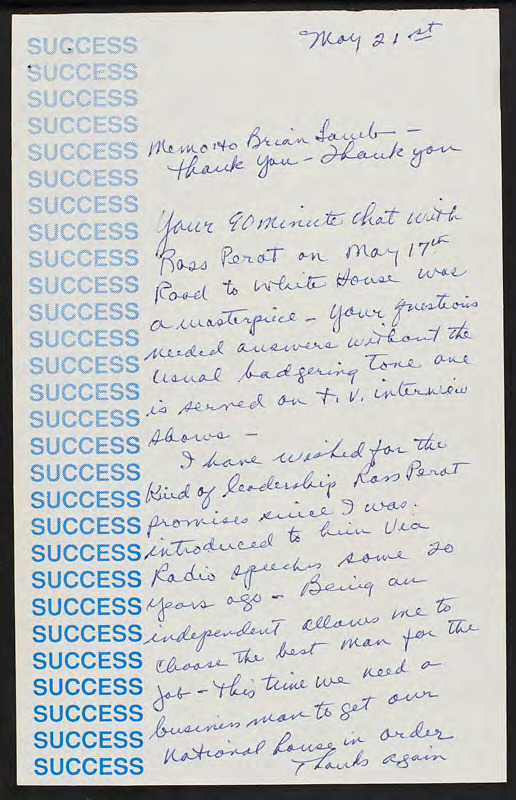 May 21st
SUCCESS
SUCCESS
SUCCESS
SUCCESS
SUCCESS Memo: to Brian Lamb –
SUCCESS Thank you – Thank you
SUCCESS
SUCCESS Your 90 minute chat with
SUCCESS Ross Perot on May 17th
SUCCESS Road to White House was
SUCCESS a masterpiece – your questions
SUCCESS needed answers without the
SUCCESS usual badgering tone one
SUCCESS is served on T.V. interview
SUCCESS shows –
SUCCESS I have wished for the
SUCCESS Kind of leadership Ross Perot
SUCCESS promises since I was
SUCCESS introduced to him via
SUCCESS Radio speeches some 20
SUCCESS years ago – Being an
SUCCESS independent allows me to
SUCCESS choose the best man for the
SUCCESS job – This time we need a
SUCCESS business man to get our
SUCCESS National house in order
SUCCESS Thanks again
SUCCESS